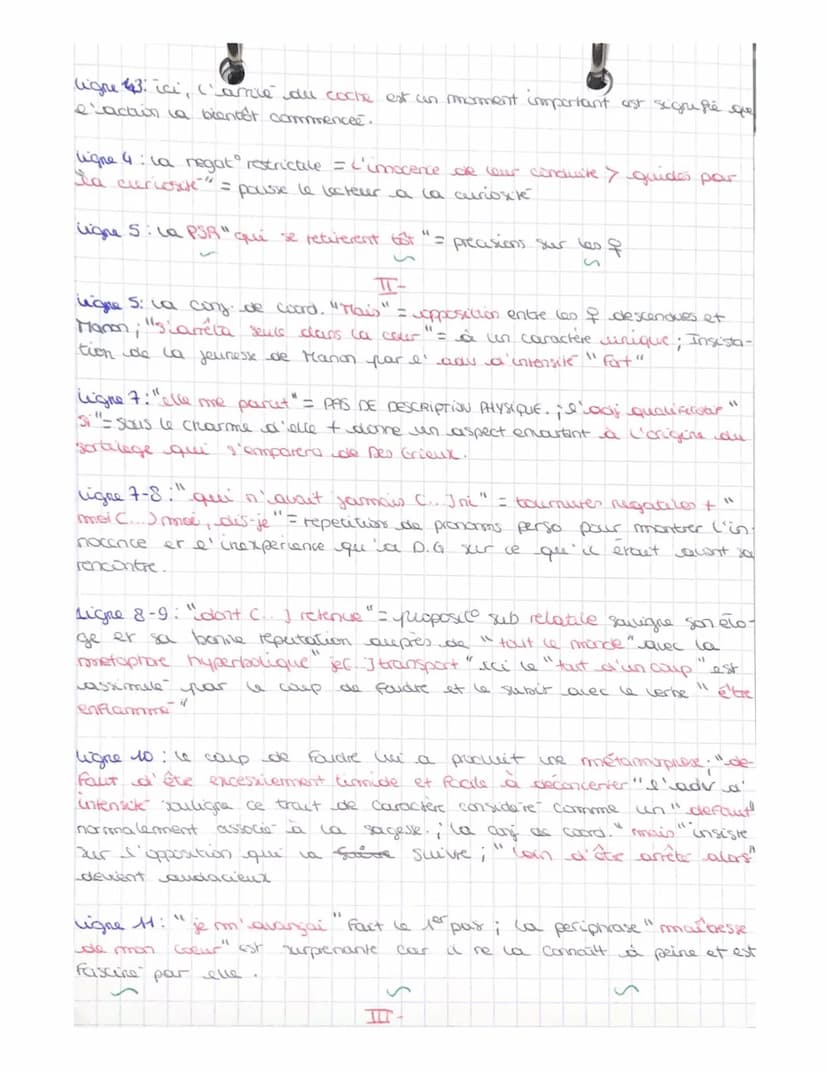 ligne 43: ici, l'arrivé du coche est un moment important est signifié que
l'action va bientôt commencée.
ligne 4 : la negat° restrictive = l'inocence de leur conduite > guidés par
"la curiosité" = pousse le lecteur a la curiosité
ligne 5 : La PSR "qui se retirerent tôt" = precisions sur les ♀
II-
ligne 5: la conj. de coord. "Mais" = opposition entre les ♀ descendues et
Manon ; "s'arrêta seule dans la cour" = à un caractère unique ; Insista-
tion de la jeunesse de Manon par l'adv d'intensité "fort"
ligne 7 : "elle me parut" = PAS DE DESCRIPTION PHYSIQUE. ; l'adj qualificatif "
si" = sous le charme d'elle + donne un aspect envoutant à l'origine du
sortilege qui s'emparera de Des Grieux.
ligne 7-8 : " qui n'avait jamais (...) ni" = tournures negatives + "
moi (...) moi, dis-je" = repetition de pronoms perso pour montrer l'in-
nocence et l'inexperience qu'a D.G sur ce qu'il était avant sa
rencontre.
Ligne 8-9 : "dont (...) retenue" = proposit° sub relative souligne son élo-
ge et sa bonne réputation auprès de "tout le monde" avec la
métaphore hyperbolique "je(...) transport" ici le "tout d'un coup" est
assimulé par le coup de foudre et le subir avec le verbe "être
enflammé"
ligne 10 : le coup de foudre lui a produit une métamorphose: "de-
faut d'être excessivement timide et facile à déconcerter" l'adv d'
intensité souligne ce trait de caractère considéré comme un "defaut"
normalement associé à la sagesse. ; la conj de coord. "mais" insiste
sur l'opposition qui va suivre ; "loin d'être arrêté alors"
devient audacieux
ligne 11 : "je m'avançai" Fait le 1er pas ; la periphrase "maîtresse
de mon coeur" est surprenante car il ne la connaît à peine et est
fasciné par elle.
III-